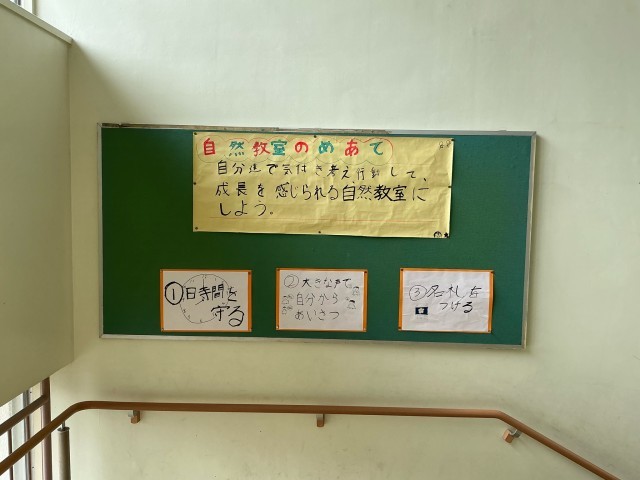 自然教室のめあて
自分達で気付き考え行動して、
成長を感じられる自然教室に
しよう。
①時間を
守る
②大きな声で
自分から
あいさつ
③名札を
つける